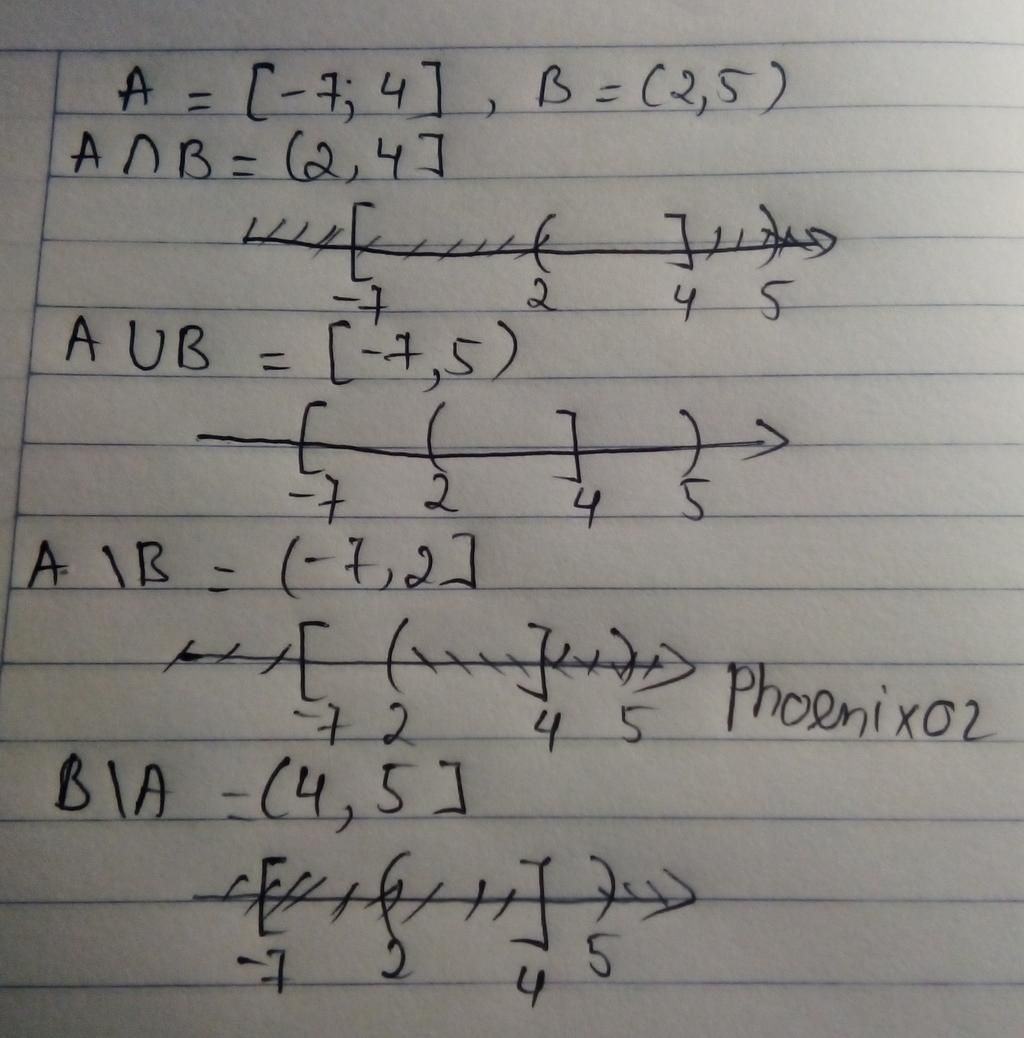 A = [-7; 4] , B = (2,5)
A ∩ B = (2, 4]
-7 2 4 5
A ∪ B = [-7,5)
-7 2 4 5
A \ B = (-7,2]
-7 2 4 5
Phoenix02
B \ A = (4, 5]
-7 2 4 5